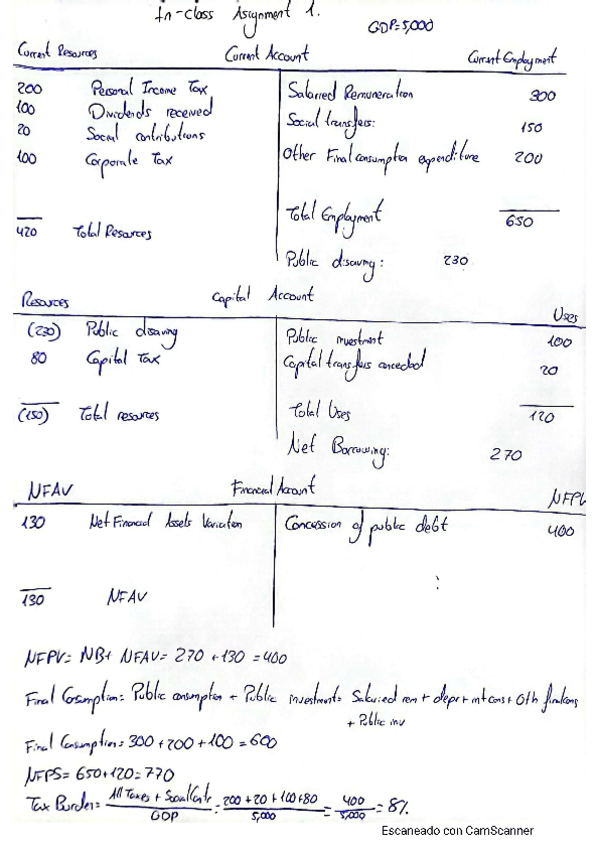 In-class Assignment 1.
GDP=5,000
Current Resources Current Account Current Employment
200 Personal Income Tax Salarried Remuneration 300
100 Dividends received Social transfers: 150
20 Social contributions Other Final consumption expenditure 200
100 Corporate Tax
Total Employment 650
420 Total Resources
Public dissaving: 230
Resources Capital Account Uses
(230) Public dissaving Public investment 100
80 Capital Tax Capital transfers conceded 20
(150) Total resources Total Uses 120
Net Borrowing: 270
NFAV Financial Account NFPV
130 Net Financial Assets Variation Concession of public debt 400
:
130 NFAV
NFPV= NB+ NFAV= 270 +130 =400
Final Consumption= Public consumption + Public investment= Salaried rem + depr + int cons + Oth
+ Public inv
Final Consumption= 300+200+100=600
NFPS= 650+120=770
Tax Burden= All Taxes + Social Contr / GDP = 200+20+100+80 / 5,000 = 400 / 5,000 = 8%
Escaneado con CamScanner